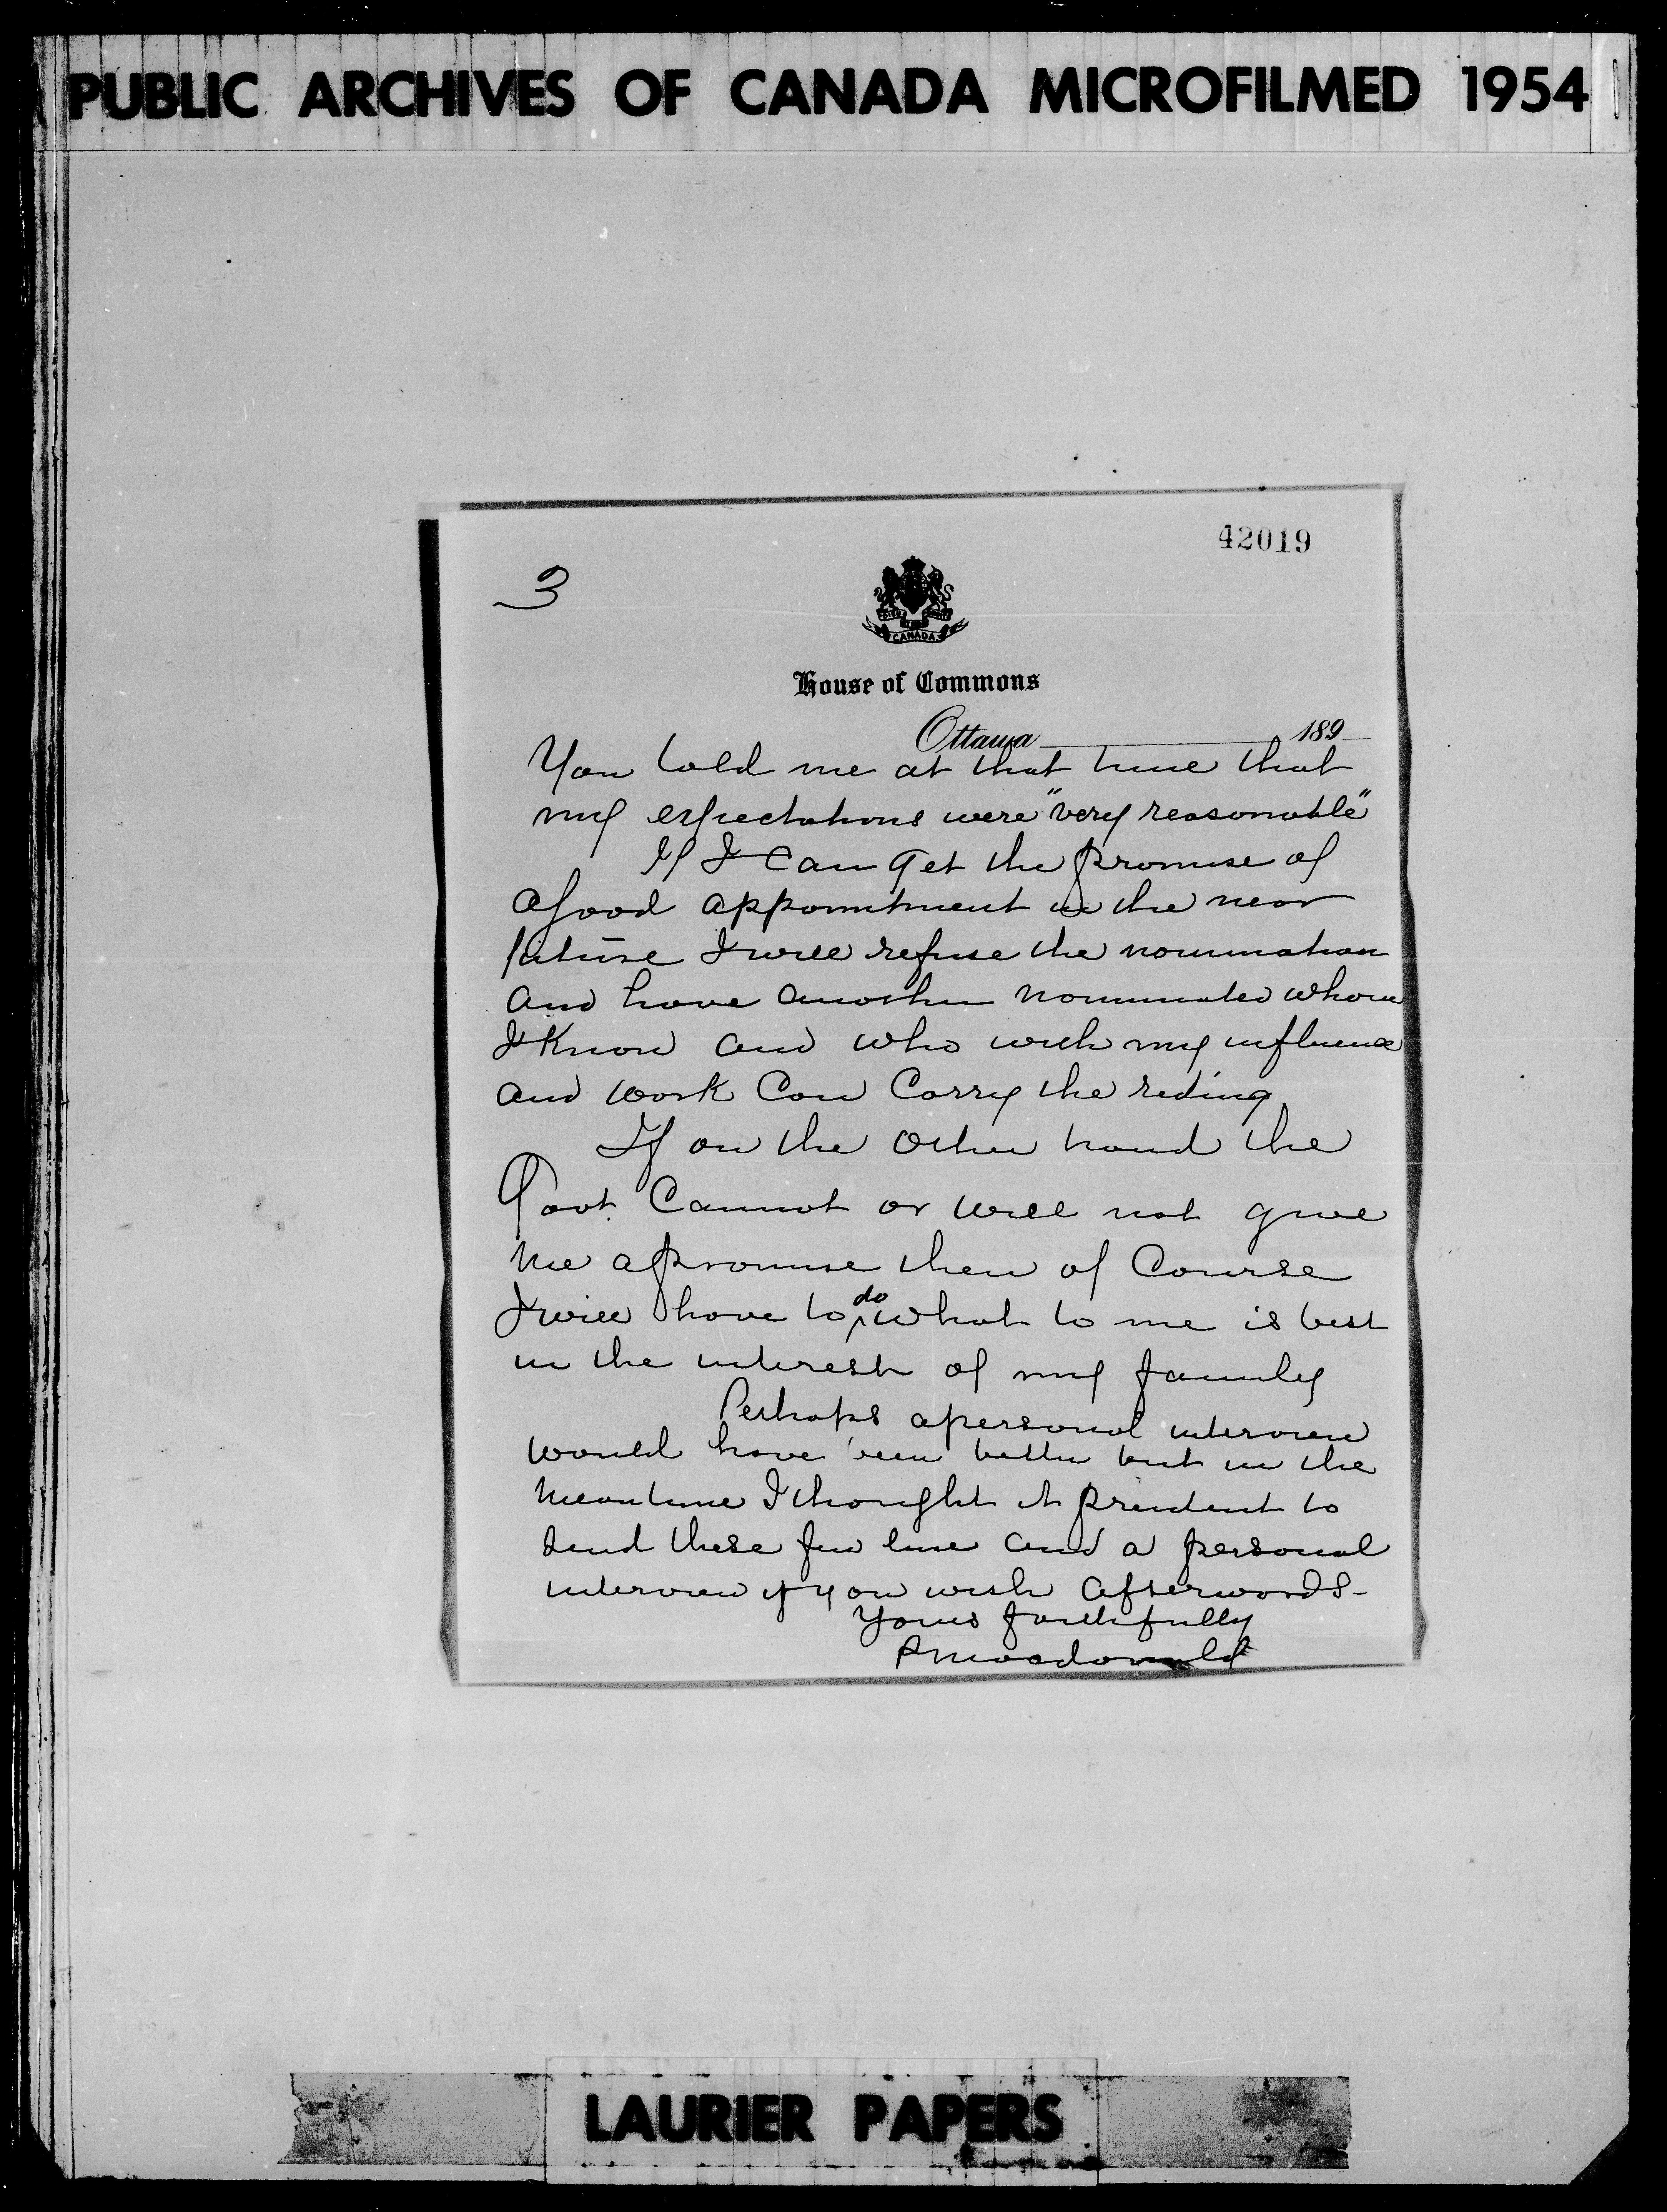 PUBLIC ARCHIVES OF CANADA MICROFILMED 1954
42019
3
CANADA
House of Commons
Ottawa 189
You told me at that time that
my expectations were "very reasonable"
If I can get the promise of
a good appointment in the near
future I will refuse the nomination
and have another nominated whom
I know and who with my influence
and work can carry the riding
If on the other hand the
Govt. Cannot or will not give
me a promise then of course
I will have to do what to me is best
in the interest of my family
Perhaps a personal interview
would have been better but in the
meantime I thought it prudent to
send these few line and a personal
interview if you wish afterwards-
Yours faithfully
PMacdonald
LAURIER PAPERS